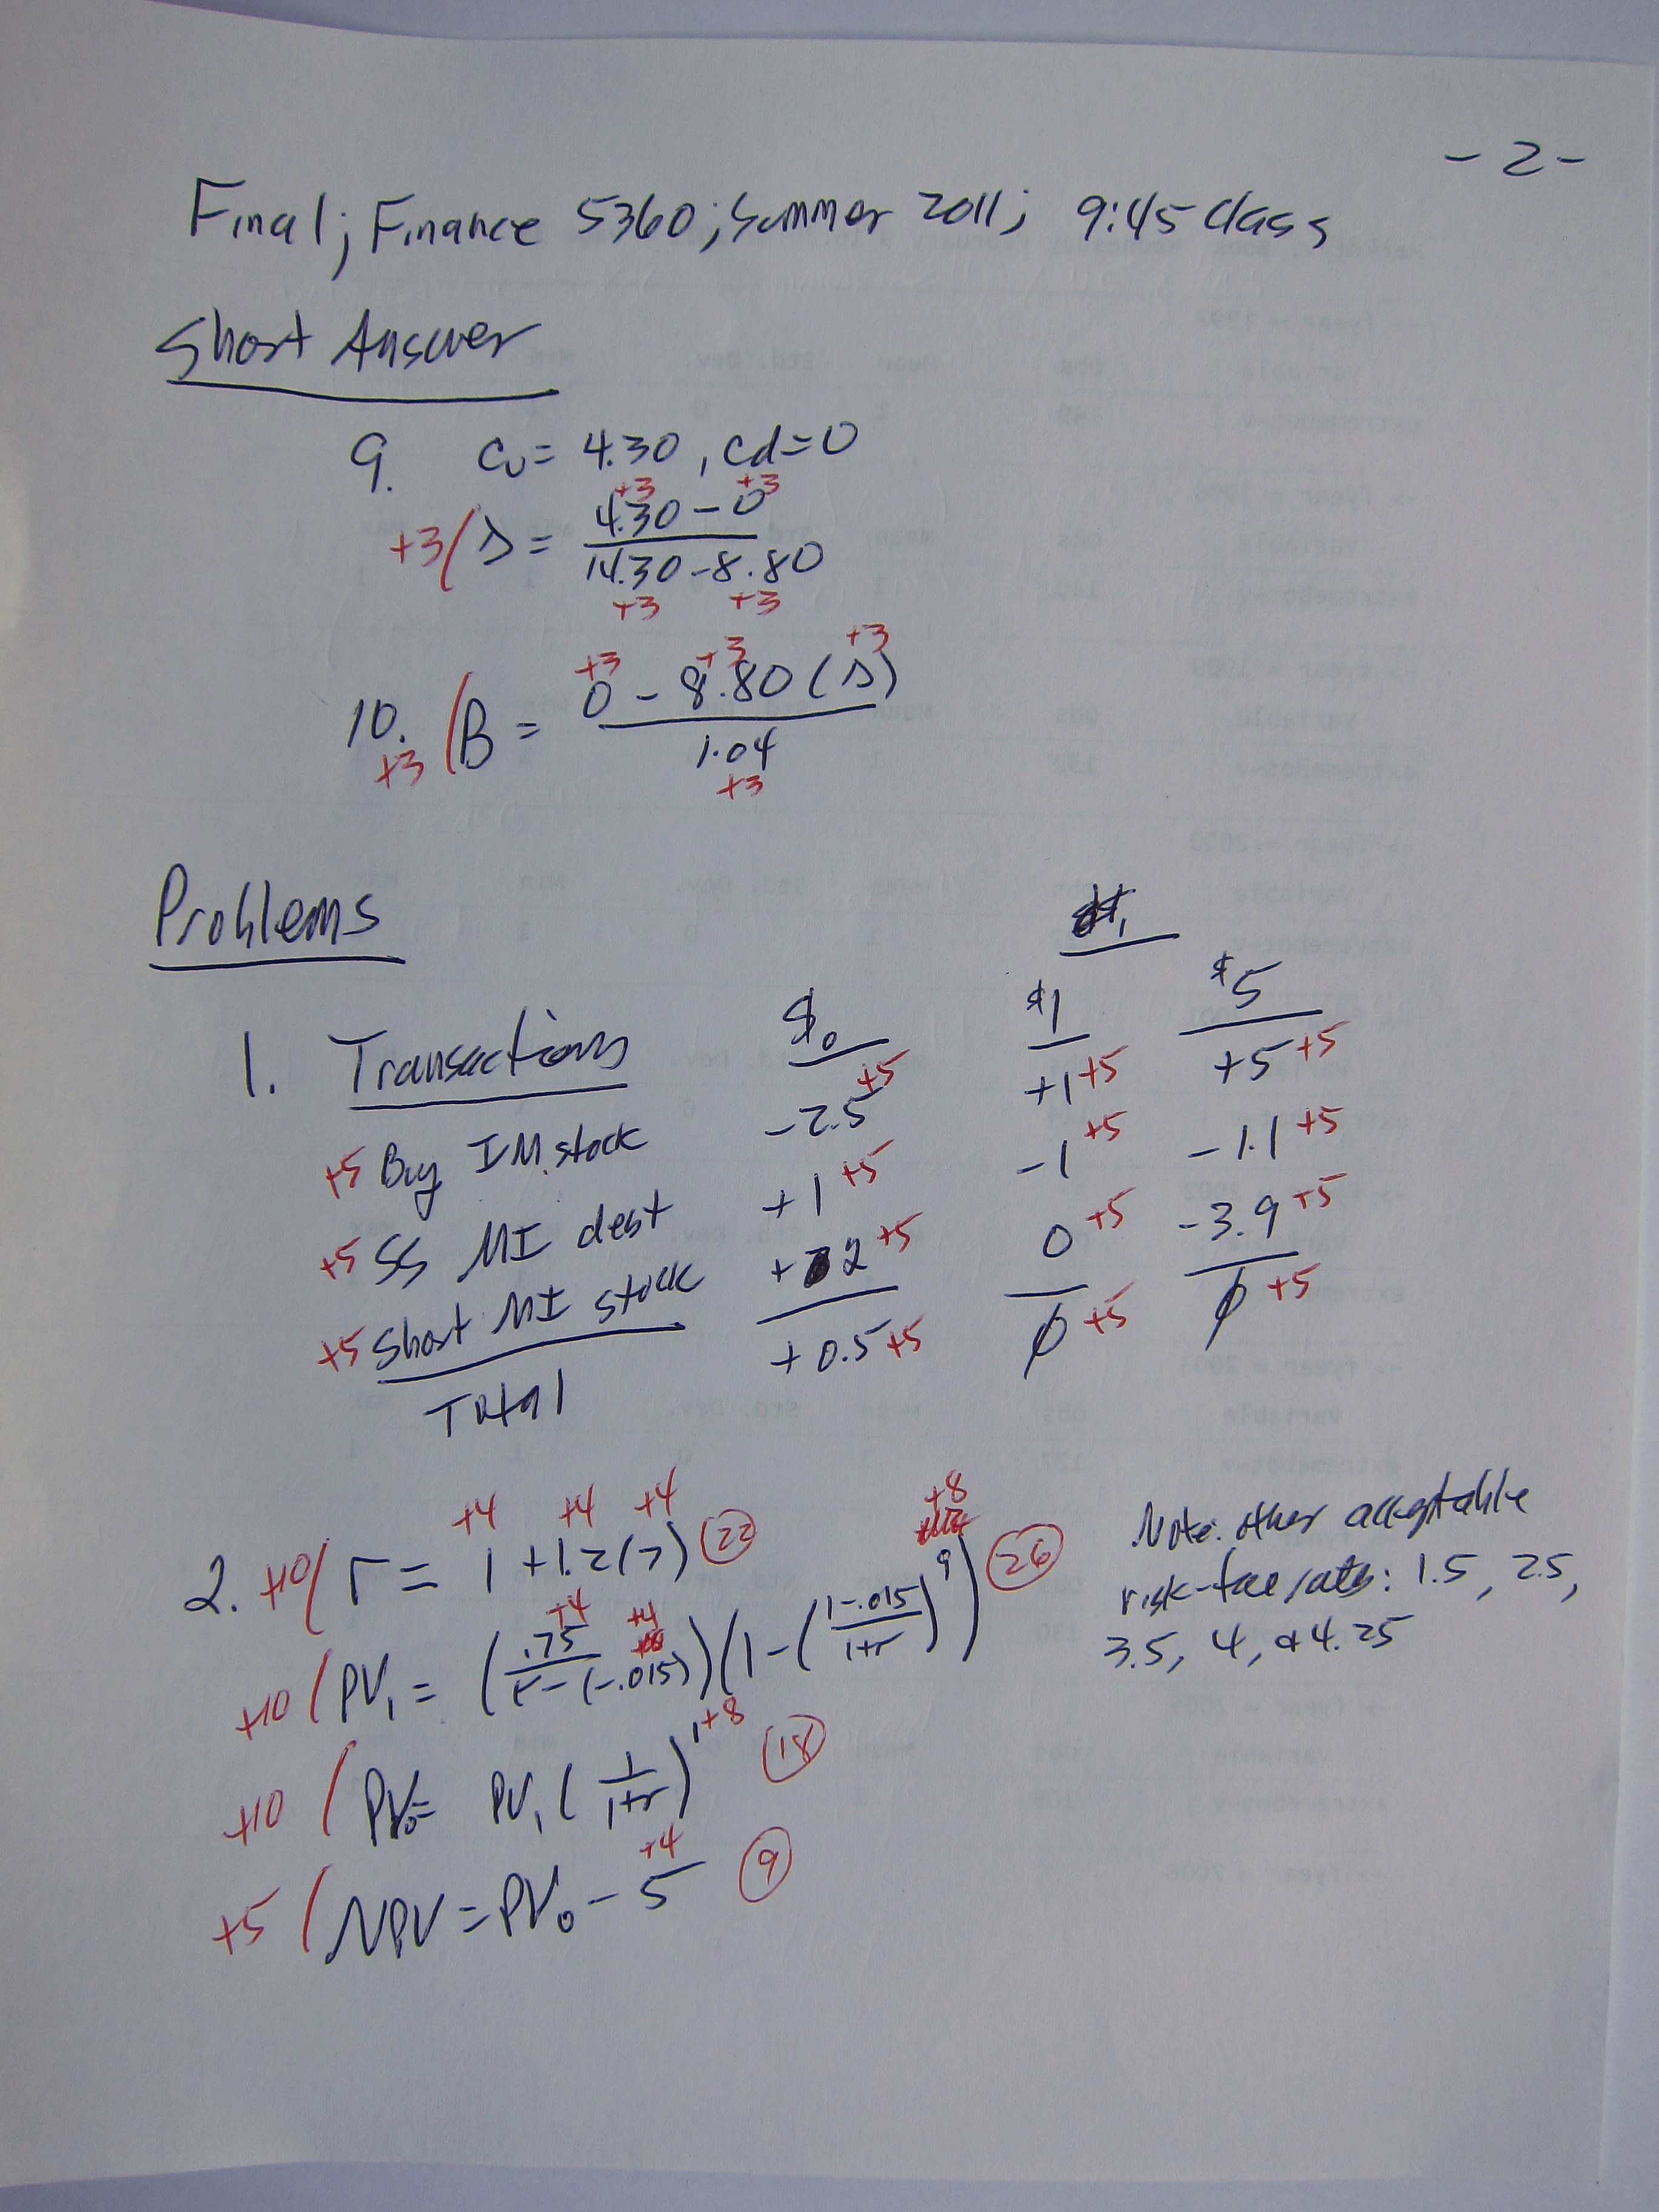 - 2 -
Final; Finance 5360; Summer 2011; 9:45 class
Short Answer
9. Cu = 4.30, Cd = 0
+3 +3
+3 ( Δ = 4.30 - 0
14.30 - 8.80
+3 +3
+3 +3 +3
10. ( B = 0 - 8.80 (Δ)
+3 1.04
+3
Problems
1. Transactions $0 $1 $5
+5 Buy IM stock -2.5 +5 +1 +5 +5 +5
+5 SS MI debt +1 +5 -1 +5 -1.1 +5
+5 Short MI stock +2 +5 0 +5 -3.9 +5
Total +0.5 +5 0 +5 0 +5
+4 +4 +4
2. +10 ( r = 1 + 1.2(7) (22)
+4 +4 +8
+10 ( PV1 = (.75 / r - (-.015)) (1 - (1-.015 / 1+r)^9) (26)
Note: other acceptable
risk-free rates: 1.5, 2.5,
3.5, 4, & 4.25
+10 ( PV0 = PV1 (1 / 1+r)^1 +8 (18)
+4
+5 ( NPV = PV0 - 5 (9)